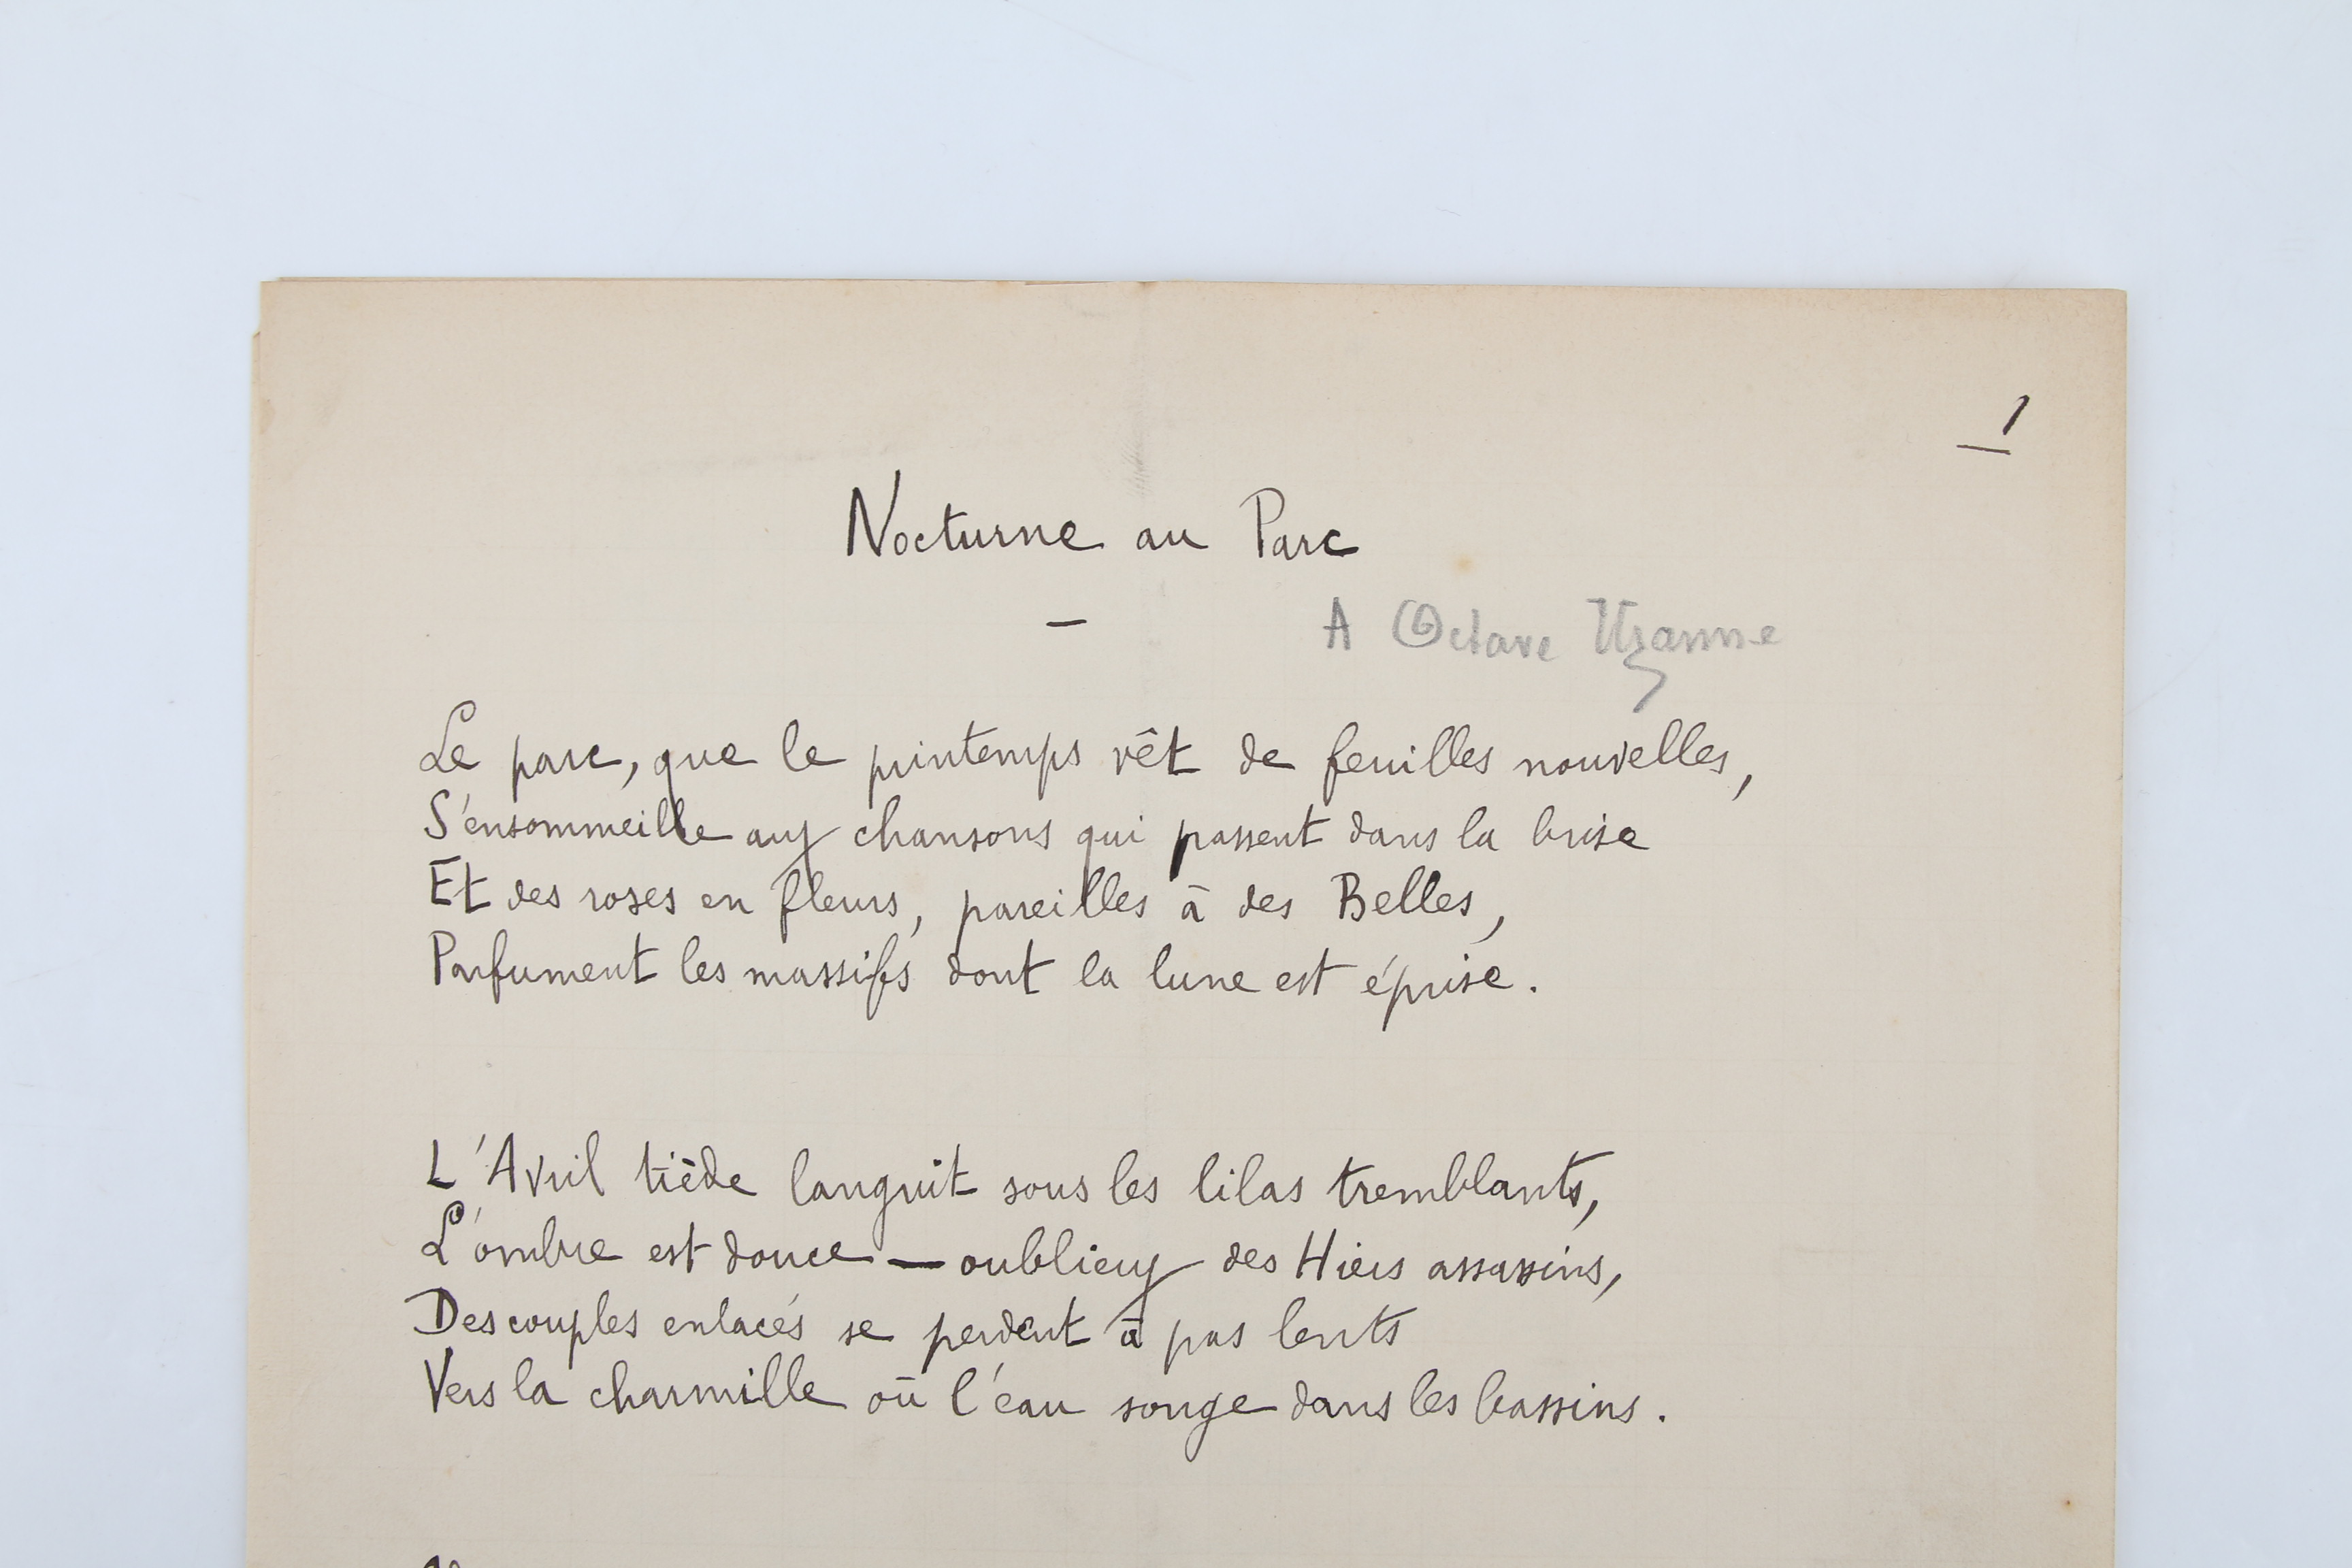 1
Nocturne au Parc
—
A Octave Uzanne
Le parc, que le printemps vêt de feuilles nouvelles,
S'ensommeille aux chansons qui passent dans la brise
Et des roses en fleurs, pareilles à des Belles,
Parfument les massifs dont la lune est éprise.
L'Avril tiède languit sous les lilas tremblants,
L'ombre est douce — oublieux des Hiers assassins,
Des couples enlacés se perdent à pas lents
Vers la charmille où l'eau songe dans les bassins.